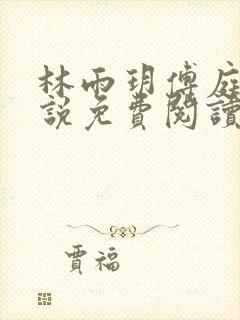 林雨玥傅庭
說免費閱讀
賈福